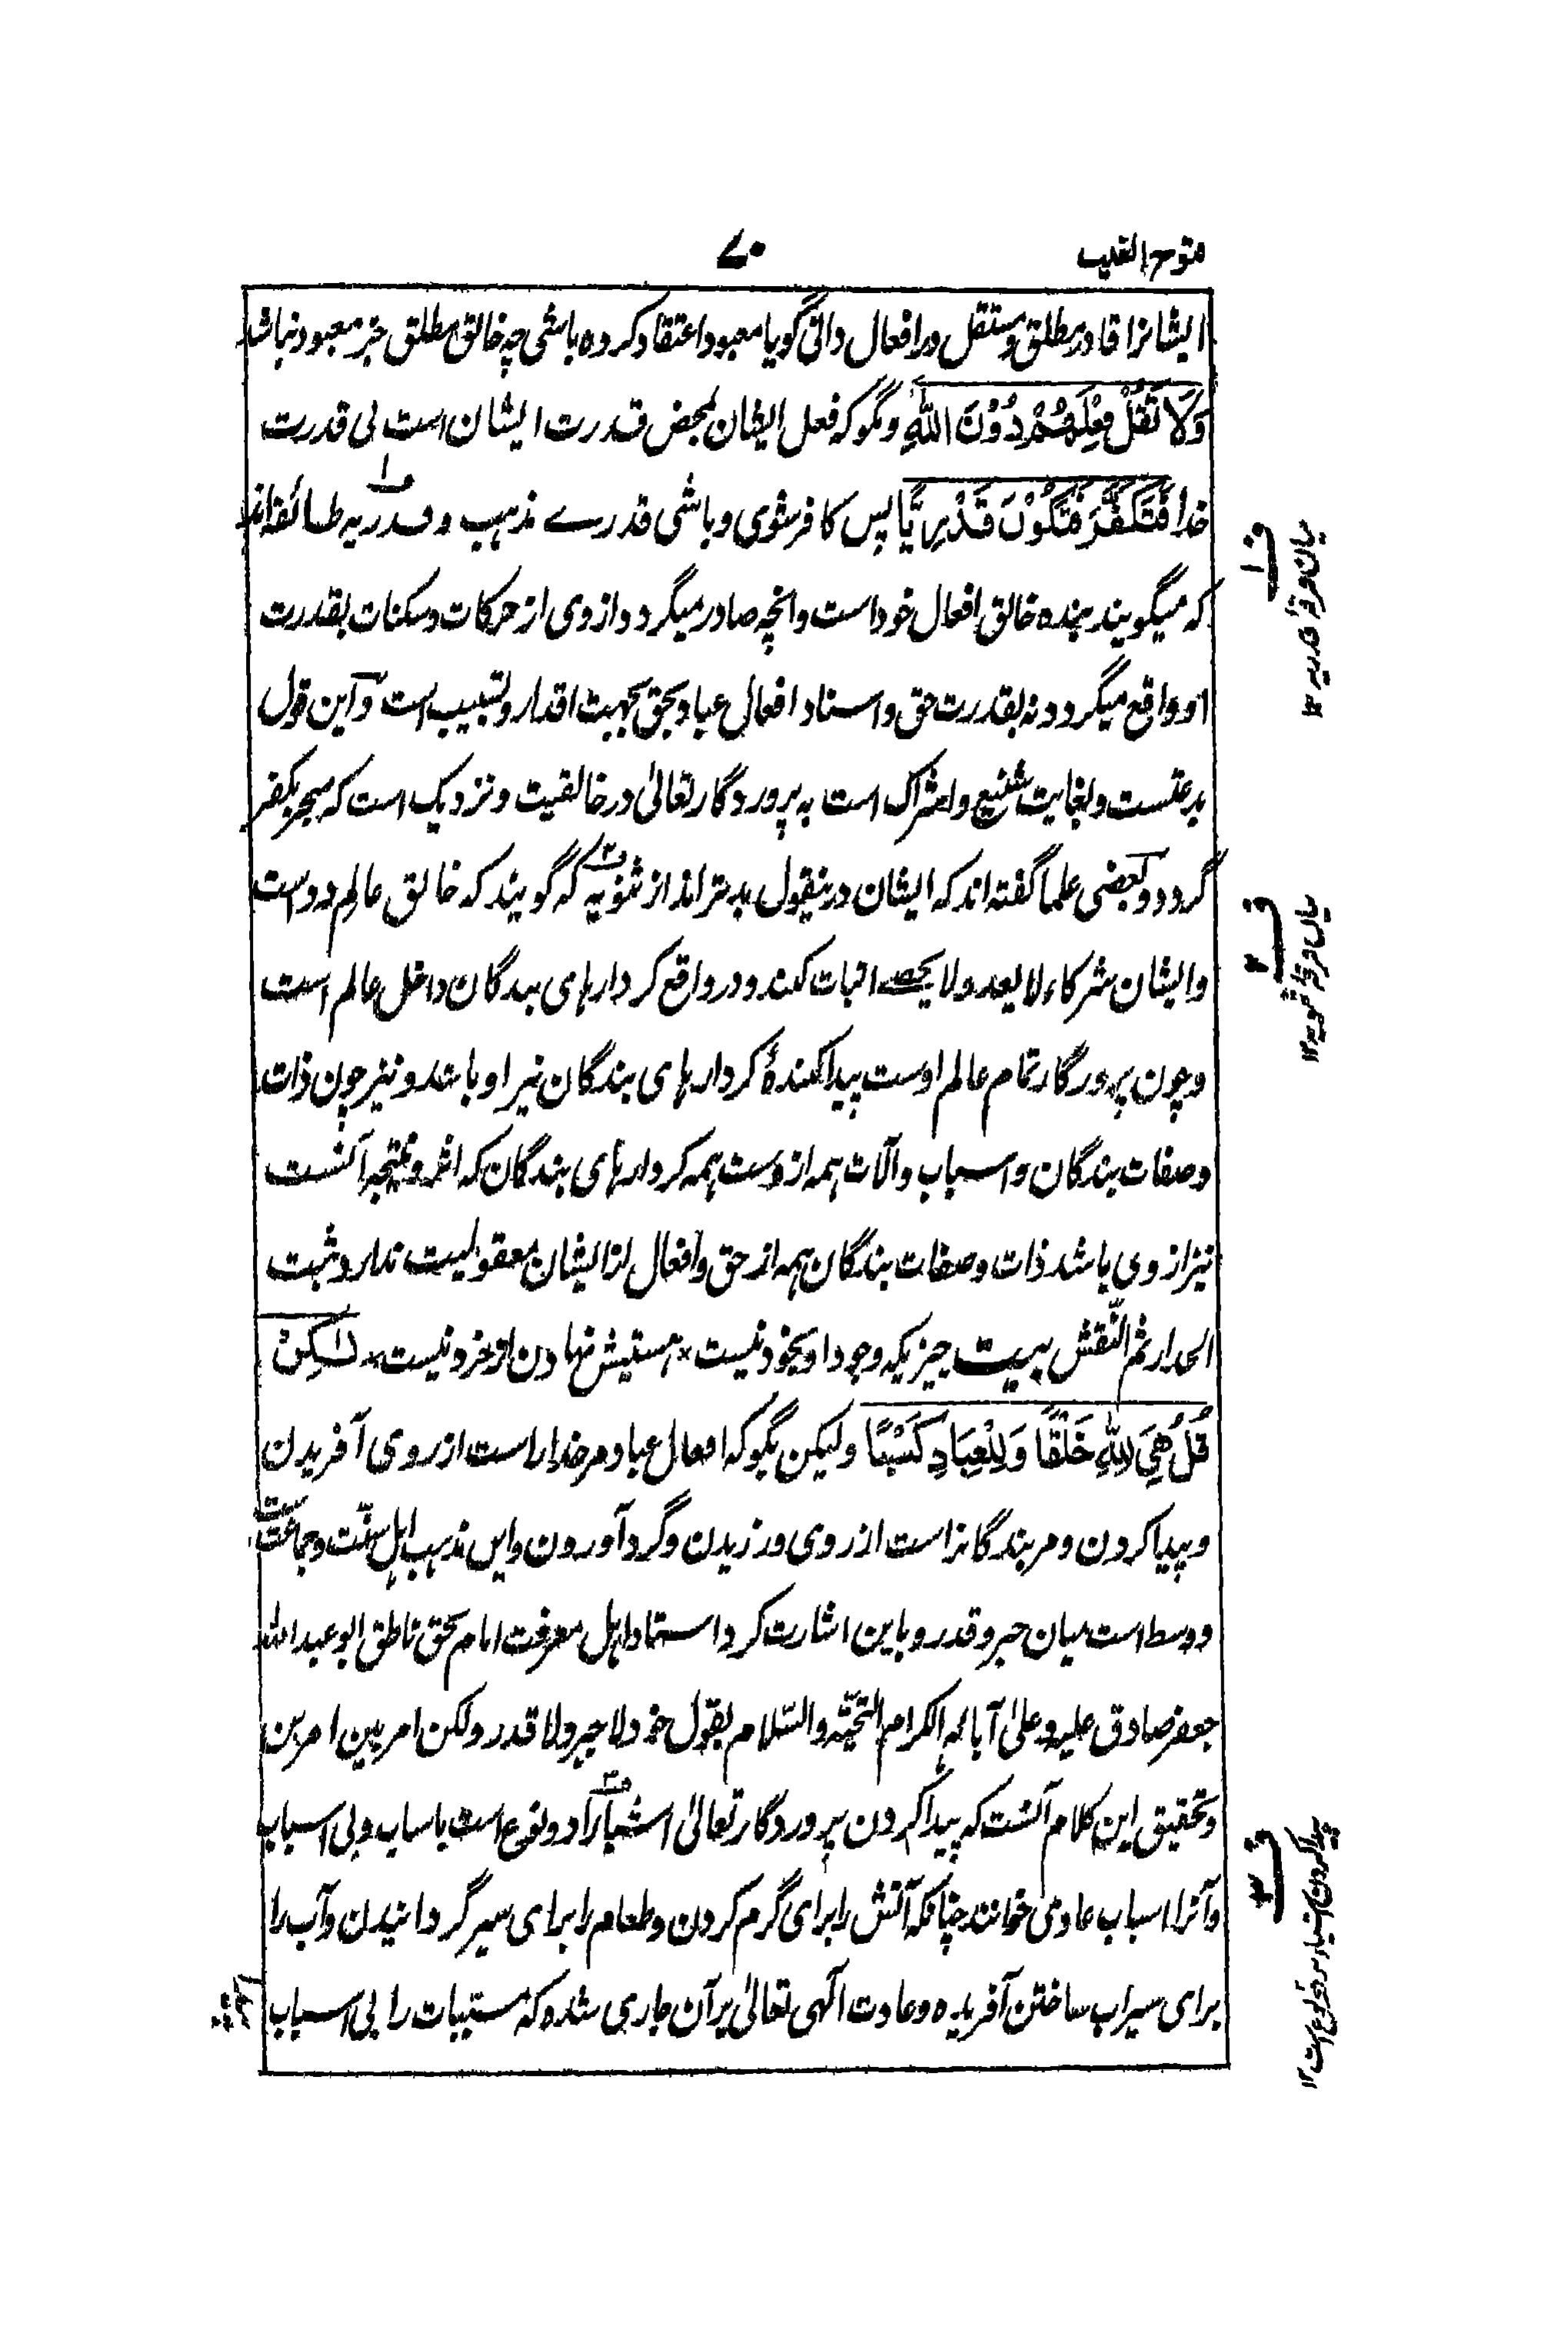 فتوح الغیب
۷۰
ایشانرا قادر مطلق و مستقل در افعال دانی گویا معبود اعتقاد کرده باشی چه خالق مطلق جز معبود نباشد
وَلَا تَقُلْ فِعْلُهُمْ دُوْنَ اللّٰهِ ومگو که فعل ایشان بمحض قدرت ایشان است بی قدرت
خدا فَتَكْفُرَ فَتَكُوْنَ قَدَرِيًّا پس کافر شوی و باشی قدرے مذہب و قدریه طائفه اند
که میگویند بنده خالق افعال خود است و انچه صادر میگردد از وی از حرکات و سکنات بقدرت
او واقع میگردد نه بقدرت حق و اسناد افعال عباد بحق بجهت اقدار و تسبیب است و این قول
بدعتست و بغایت شنیع و اشراک است به پروردگار تعالیٰ در خالقیت و نزدیک است که منجر بکفر
گردد و بعضی علما گفته اند که ایشان درینقول بدتر اند از ثنویه که گویند که خالق عالم دو است
و ایشان شرکاء لا یعد ولا یحصے اثبات کنند و در واقع کردارهای بندگان داخل عالم است
و چون پروردگار تمام عالم اوست پیدا کنندهٔ کردارهای بندگان نیز او باشد و نیز چون ذات
و صفات بندگان و اسباب و آلات همه ازوست همه کردارهای بندگان که اثر و نتیجه آنست
نیز از وی باشد ذات و صفات بندگان همه از حق و افعال از ایشان معقولیت ندارد ثبت
الجدار ثم النّقش بیت چیزیکه وجود او بخود نیست * هستیش نهادن از خرد نیست * لٰكِنْ
قُلْ هِيَ لِلّٰهِ خَلْقًا وَلِلْعِبَادِ كَسْبًا ولیکن بگو که افعال عباد مر خدا راست از روی آفریدن
و پیدا کردن و مر بندگانراست از روی ورزیدن و گرد آوردن و این مذہب اہل سنّت و جماعت است
و وسط است میان جبر و قدر و باین اشارت کرد استاد اہل معرفت امام بحق ناطق ابو عبد الله
جعفر صادق علیه و علیٰ آبائه الکرام التحیّه والسّلام بقول خود لا جبر ولا قدر ولکن امر بین امرین
و تحقیق این کلام آنست که پیدا کردن پروردگار تعالیٰ اشیا را دو نوع است باسباب و بی اسباب
و آنرا اسباب عادی خوانند چنانکه آتش را برای گرم کردن و طعام را برای سیر گردانیدن و آب را
برای سیراب ساختن آفریده و عادت الٰہی تعالیٰ بر آن جاری شده که مسببات را بی اسباب
ف ۱
بیان فرقهٔ قدریه ۱۲
ف ۲
بیان فرقهٔ ثنویه ۱۲
ف ۳
پیدا کردن اشیا بر دو نوع است ۱۲